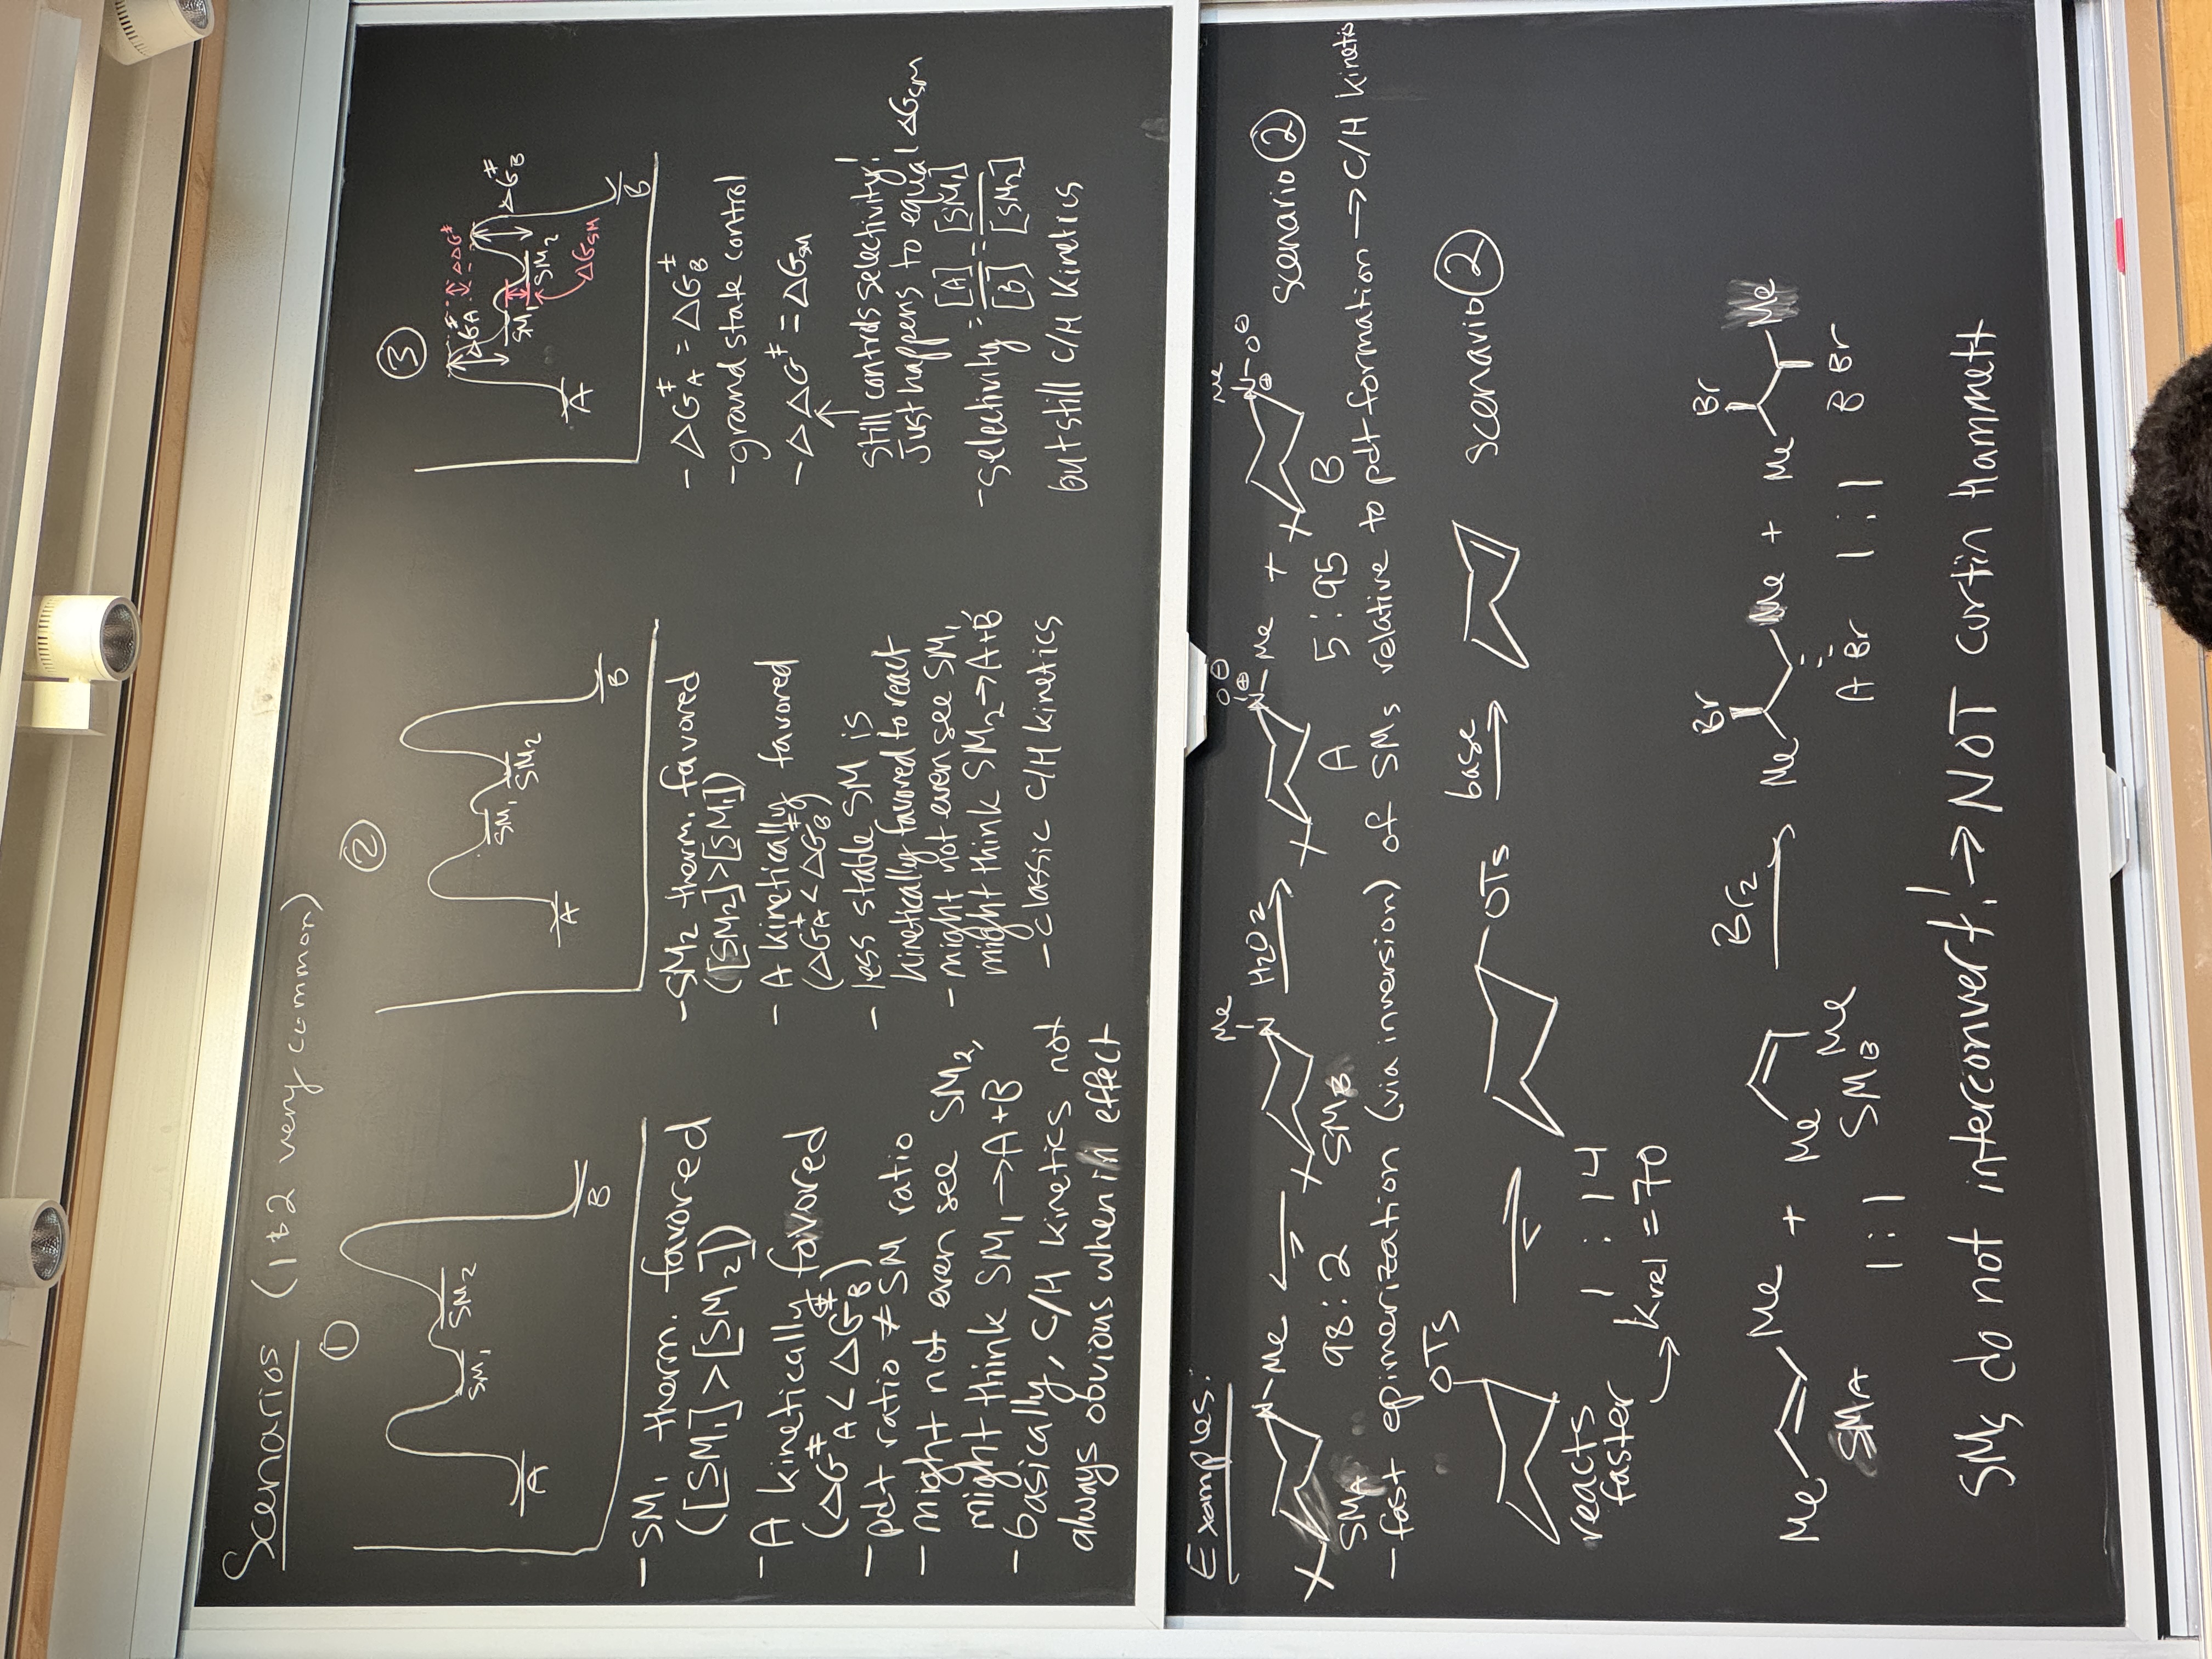 Scenarios (1 & 2 very common)
①
A
SM₁
SM₂
B
- SM₁ therm. favored
([SM₁]>[SM₂])
- A kinetically favored
(ΔG‡A < ΔG‡B)
- pdt ratio ≠ SM ratio
- might not even see SM₂,
might think SM₁ → A+B
- basically, C/H kinetics not
always obvious when in effect
②
A
SM₁
SM₂
B
- SM₂ therm. favored
([SM₂]>[SM₁])
- A kinetically favored
(ΔG‡A < ΔG‡B)
- less stable SM is
kinetically favored to react
- might not even see SM₁,
might think SM₂ → A+B
- classic C/H kinetics
③
ΔΔG‡
ΔG‡A
ΔG‡B
SM₁
SM₂
A
ΔGSM
B
- ΔG‡A = ΔG‡B
- ground state control
- ΔΔG‡ = ΔGSM
↑
Still controls selectivity!
Just happens to equal ΔGSM
- selectivity = [A]/[B] = [SM₁]/[SM₂]
but still C/H Kinetics
Examples:
N-Me
SMA
98:2
Me
N
SMB
H₂O₂
O⊖
N⊕-Me
A
+
5:95
Me
N⊕-O⊖
B
scenario ②
- fast epimerization (via inversion) of SMs relative to pdt formation → C/H kinetics
OTs
OTs
base
scenario ②
reacts
faster
1 : 14
krel = 70
Me
Me
SMA
+
1:1
Me
Me
SMB
Br₂
Br
Me
Me
A
Br
+
1:1
Br
Me
Me
B
Br
SMs do not interconvert! → NOT Curtin Hammett